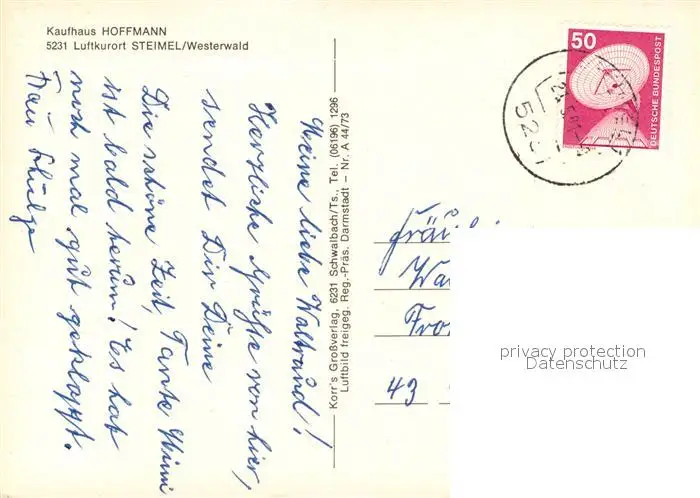 Kaufhaus HOFFMANN
5231 Luftkurort STEIMEL/Westerwald
Meine liebe Waltraud!
Herzliche Grüße von hier,
sendet Dir Deine
Tante Mimi
Die schöne Zeit,
ist bald herum! Es hat
noch mal gut geklappt.
Frau Schulze
Korr's Großverlag, 6231 Schwalbach/Ts., Tel. (06196) 1296
Luftbild freigeg. Reg.-Präs. Darmstadt – Nr. A 44/73
50
DEUTSCHE BUNDESPOST
523
43
privacy protection
Datenschutz